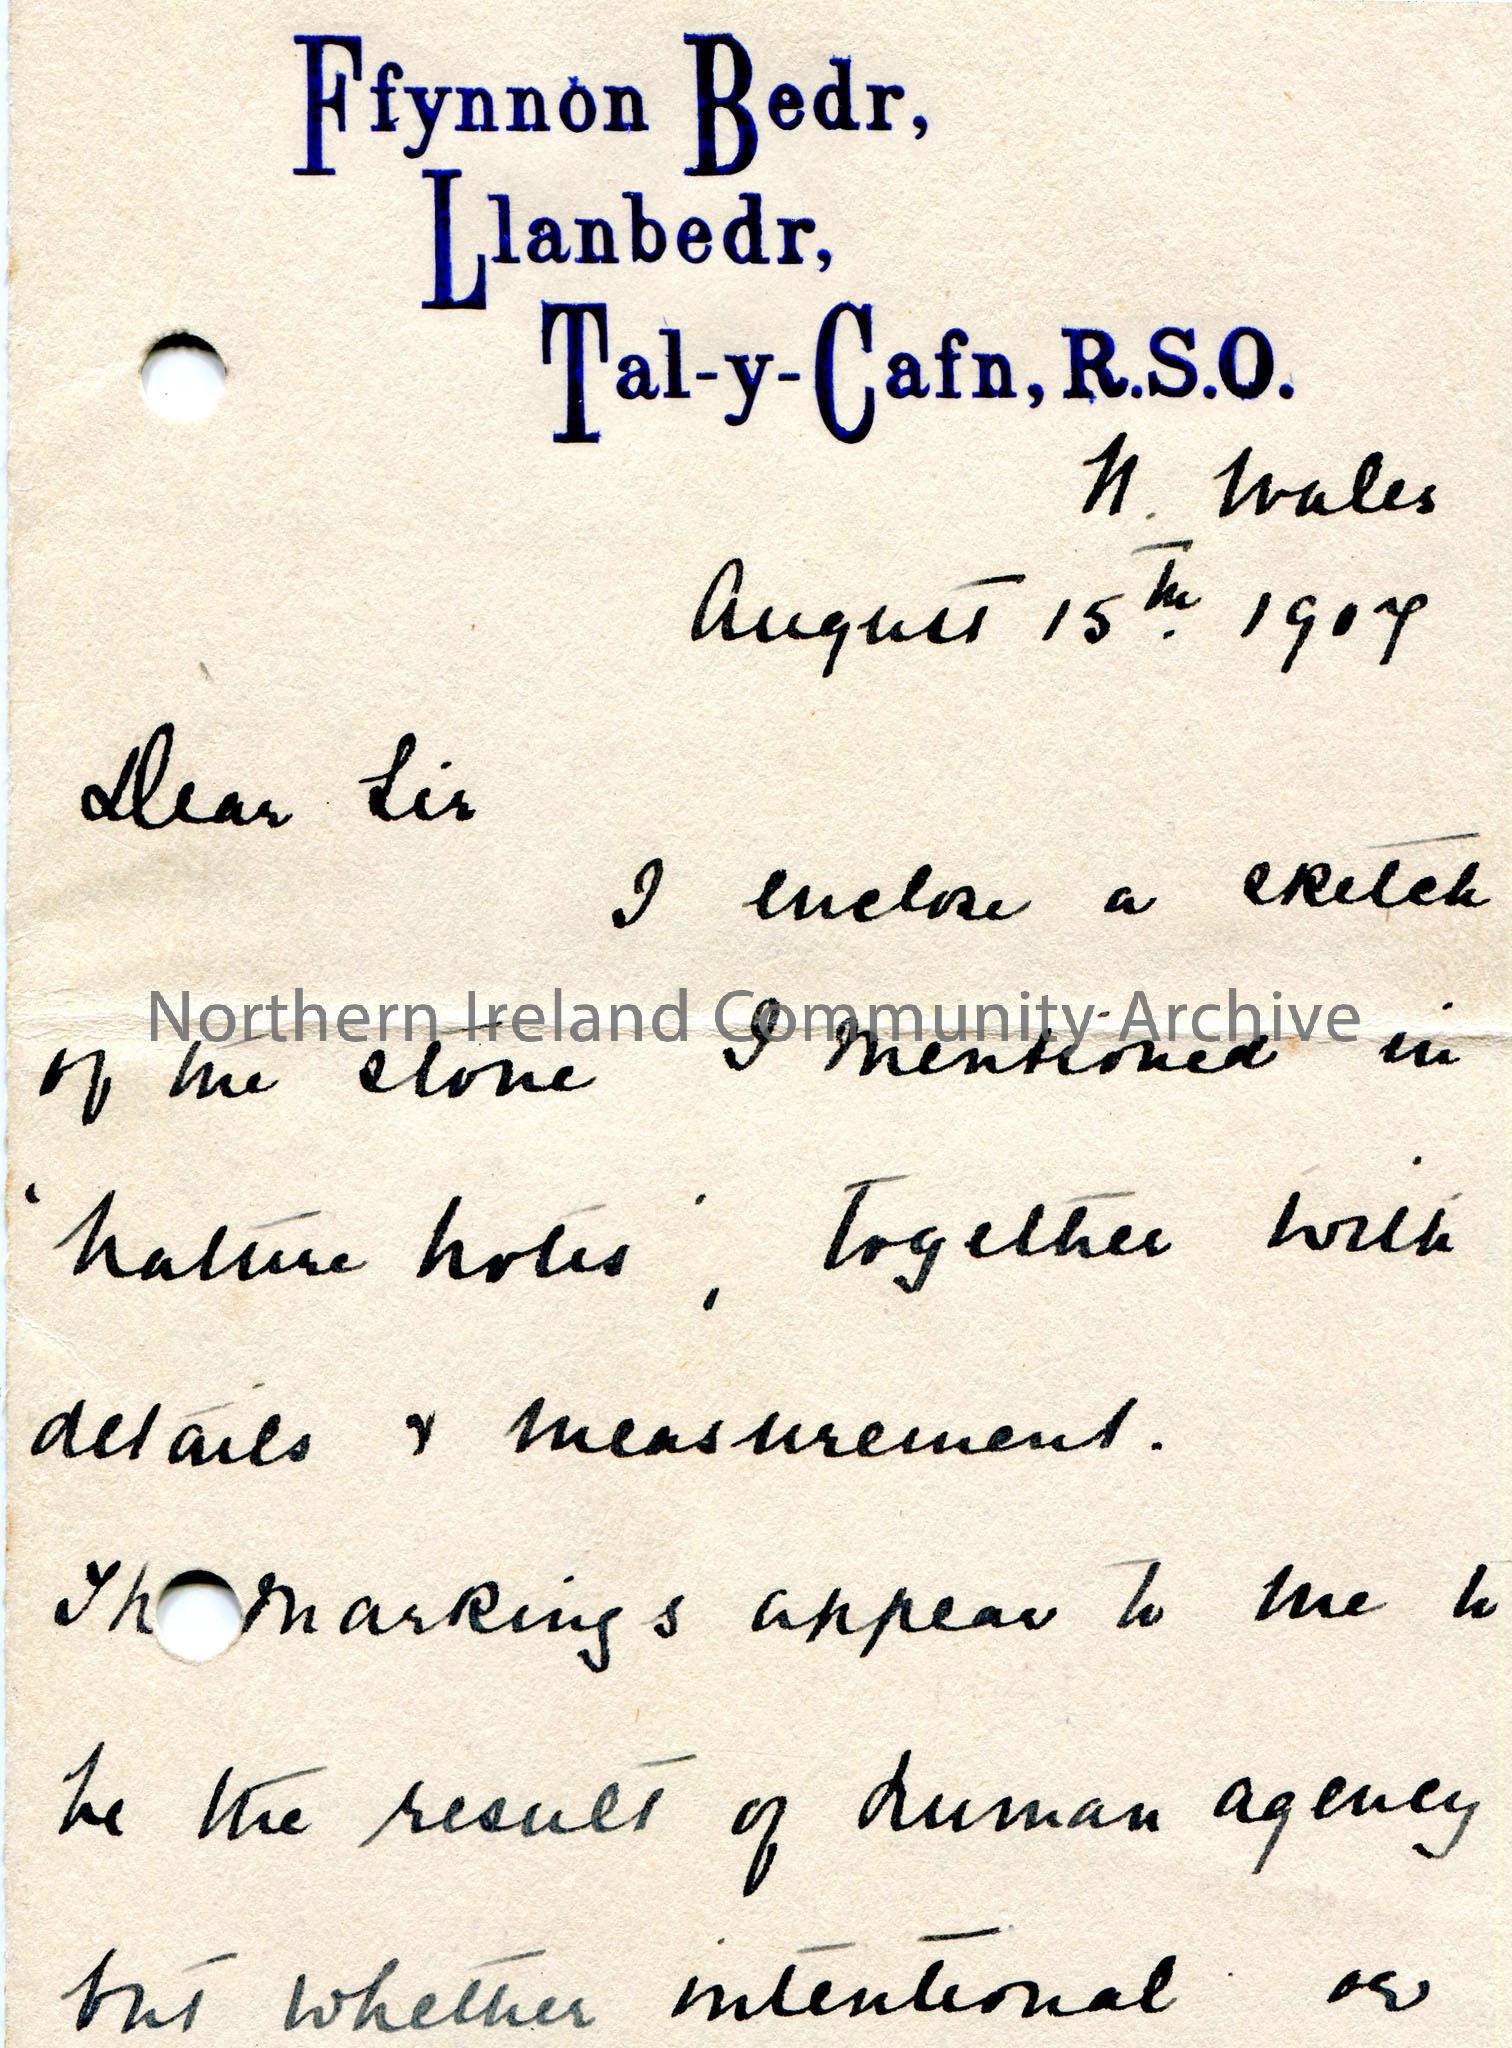 Ffynnon Bedr,
Llanbedr,
Tal-y-Cafn, R.S.O.
N. Wales
August 15th. 1907
Dear Sir
I enclose a sketch
Northern Ireland Community Archive
of the stone I mentioned in
'Nature Notes', together with
details & measurement.
Th markings appear to me to
be the result of human agency
but whether intentional or